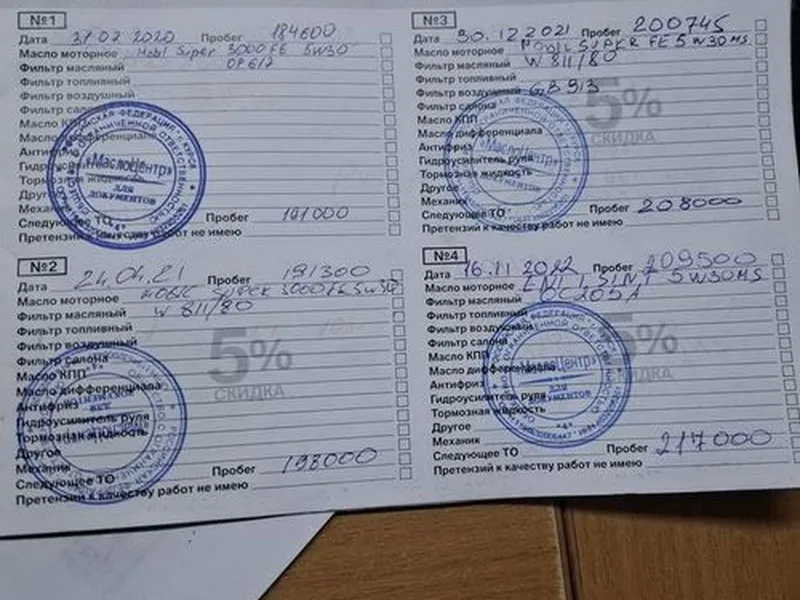 №1
Дата 31.07.2020 Пробег 184600
Масло моторное Mobil Super 3000 FE 5W30
Фильтр масляный OP 617
Фильтр топливный
Фильтр воздушный
Фильтр салона
Масло КПП
Масло дифференциала
Антифриз
Гидроусилитель
Тормозная жидкость
Другое
Механик
Следующее ТО Пробег 191000
Претензий к качеству работ не имею
«МаслоЦентр»
ДЛЯ
ДОКУМЕНТОВ
№2
Дата 24.04.21 Пробег 191300
Масло моторное MOBIL SUPER 3000 FE 5W30
Фильтр масляный W 811/80
Фильтр топливный
Фильтр воздушный
Фильтр салона
Масло КПП
Масло дифференциала
Антифриз
Гидроусилитель руля
Тормозная жидкость
Другое
Механик
Следующее ТО Пробег 198000
Претензий к качеству работ не имею
5%
СКИДКА
№3
Дата 30.12.2021 Пробег 200745
Масло моторное MOBIL SUPER FE 5W30 MS
Фильтр масляный W 811/80
Фильтр топливный
Фильтр воздушный GB 913
Фильтр салона
Масло КПП
Масло дифференциала
Антифриз
Гидроусилитель руля
Тормозная жидкость
Другое
Механик
Следующее ТО Пробег 208000
Претензий к качеству работ не имею
5%
СКИДКА
«МаслоЦентр»
ДЛЯ
ДОКУМЕНТОВ
№4
Дата 16.11 2022 Пробег 209500
Масло моторное ENI I.SINT 5W30 MS
Фильтр масляный OC205A
Фильтр топливный
Фильтр воздушный
Фильтр салона
Масло КПП
Масло дифференциала
Антифриз
Гидроусилитель руля
Тормозная жидкость
Другое
Механик
Следующее ТО Пробег 217000
Претензий к качеству работ не имею
5%
СКИДКА
«МаслоЦентр»
ДЛЯ
ДОКУМЕНТОВ